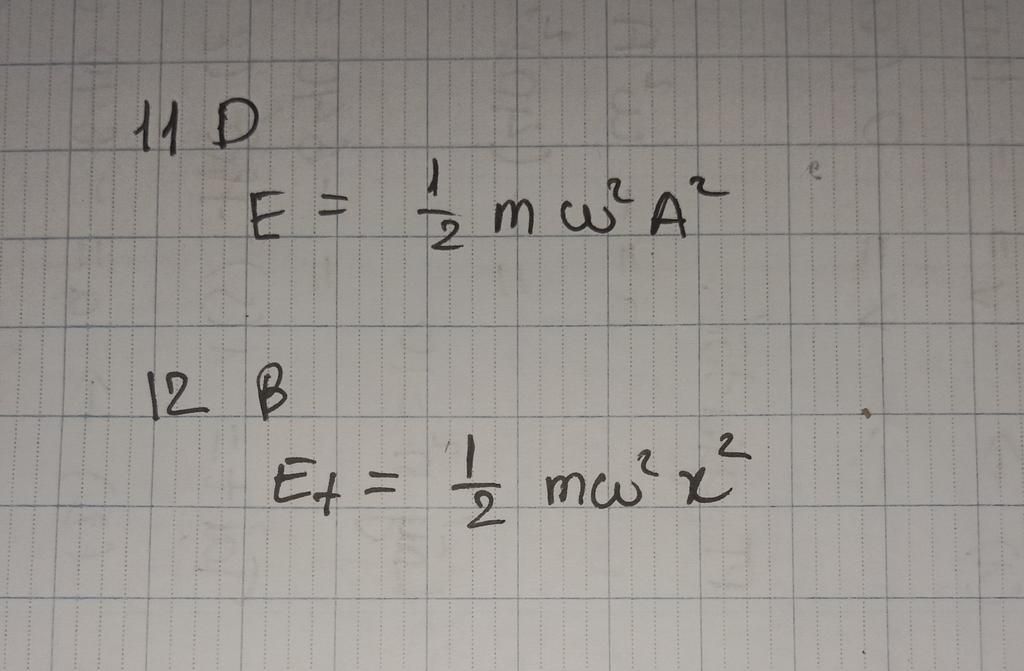 11 D
E = 1/2 m ω² A²
12 B
Et = 1/2 mω² x²